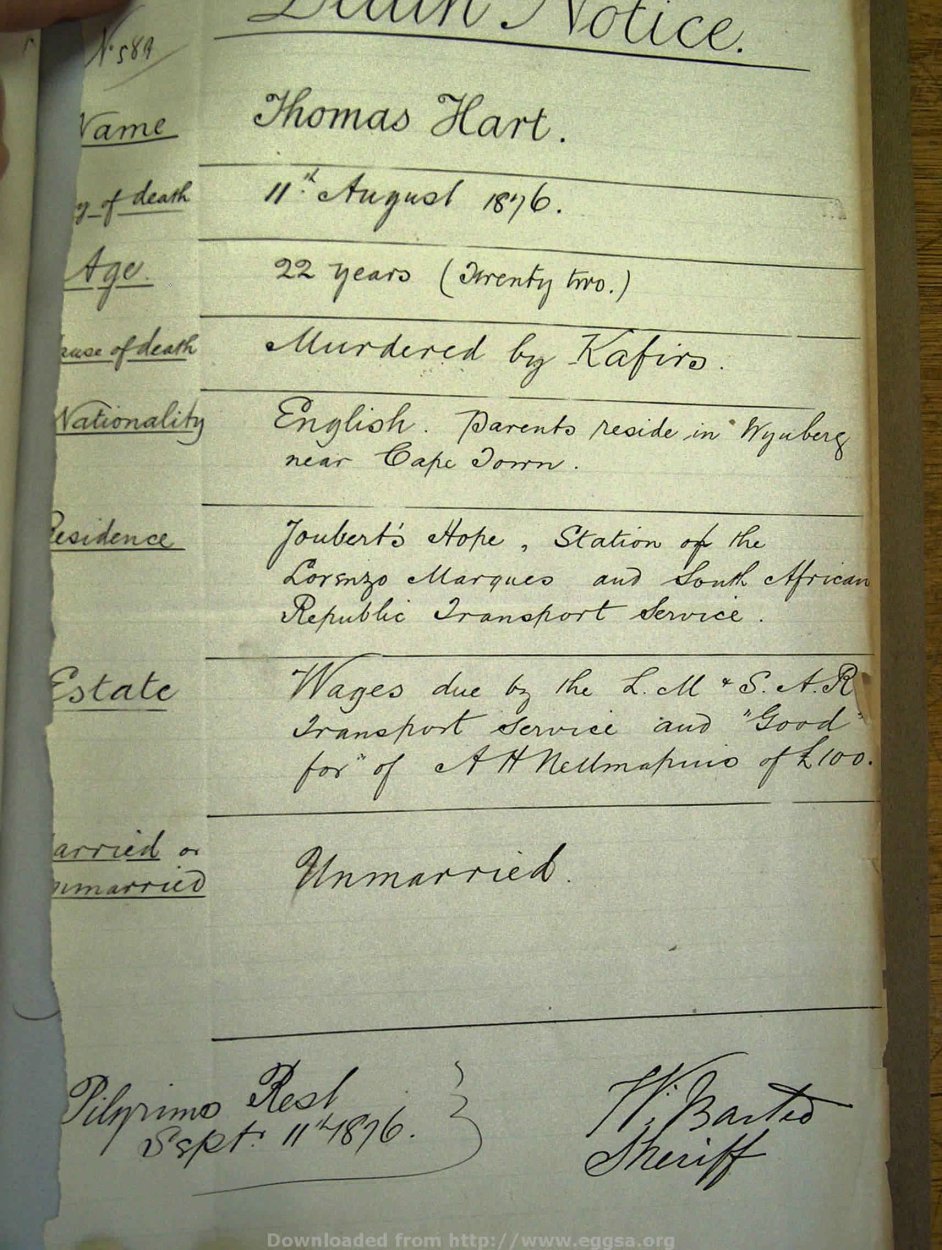 Death Notice.
No 589
Name Thomas Hart.
y of death 11th August 1876.
Age. 22 years (Twenty two.)
ause of death Murdered by Kafirs.
Nationality English. Parents reside in Wynberg
near Cape Town.
Residence Joubert's Hope, Station of the
Lorenzo Marques and South African
Republic Transport Service.
Estate Wages due by the L. M & S. A. R
Transport Service and "Good
for" of A H Nellmapius of £100.
arried or
nmarried Unmarried.
Pilgrims Rest
Sept. 11th 1876.
W. Barter
Sheriff
Downloaded from http://www.eggsa.org